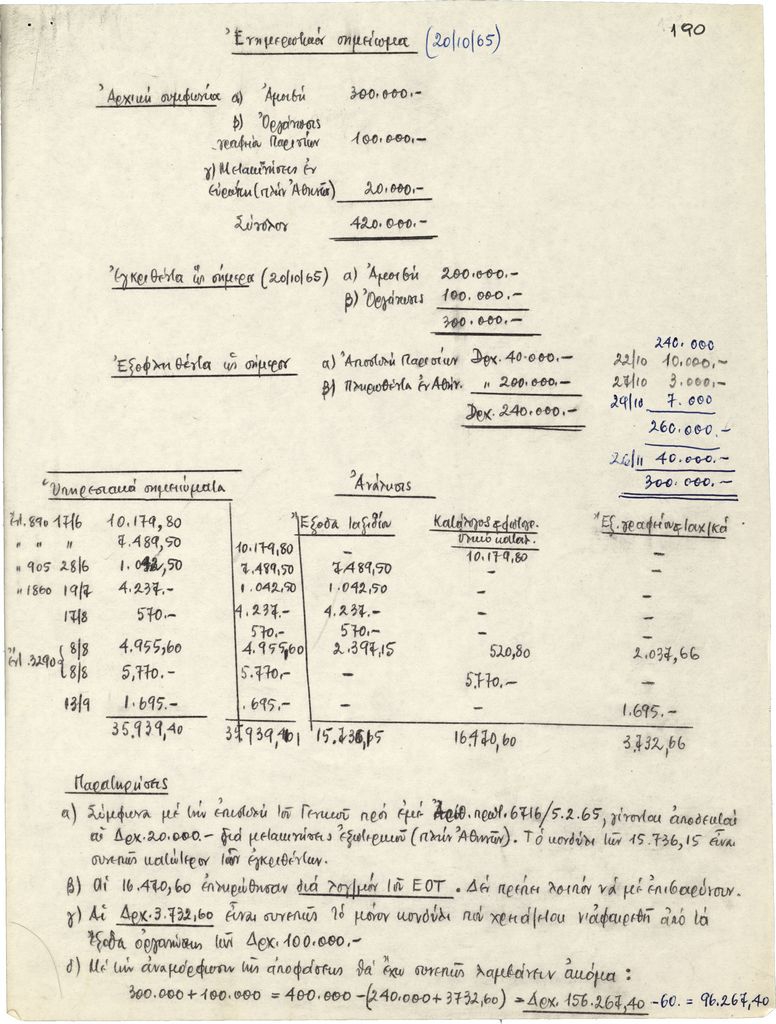 190
Ἐνημερωτικόν σημείωμα (20/10/65)
Ἀρχική συμφωνία α) Ἀμοιβή 300.000.-
β) Ὀργάνωσις
γραφείου Παρισίων 100.000.-
γ) Μετακινήσεις ἐν
Εὐρώπῃ (πλήν Ἀθηνῶν) 20.000.-
Σύνολον 420.000.-
Ἐγκριθέντα ὥς σήμερα (20/10/65) α) Ἀμοιβή 200.000.-
β) Ὀργάνωσις 100.000.-
300.000.-
Ἐξοφληθέντα ὥς σήμερον α) Ἀποστολή Παρισίων Δρχ. 40.000.-
β) Πληρωθέντα ἐν Ἀθήν. " 200.000.-
Δρχ. 240.000.-
240.000
22/10 10.000,-
27/10 3.000,-
29/10 7.000
260.000.-
26/11 40.000.-
300.000.-
Ὑπηρεσιακά σημειώματα Ἀνάλυσις
Ἔξοδα ταξιδίου Κατάλογος & φωτογρ. Ἐξ. γραφείου & ταχ/κά
ὑλικό καταλ.
890 17/6 10.179,80 10.179,80 - 10.179,80 -
" " " 7.489,50 7.489,50 7.489,50 - -
" 905 28/6 1.042,50 1.042,50 1.042,50 - -
" 1860 19/7 4.237.- 4.237.- 4.237.- - -
17/8 570.- 570.- 570.- - -
3290 8/8 4.955,60 4.955,60 2.397,15 520,80 2.037,66
8/8 5,770.- 5.770.- - 5.770.- -
13/9 1.695.- 1.695.- - - 1.695.-
35.939,40 35.939,40 15.736,15 16.470,60 3.732,66
Παρατηρήσεις
α) Σύμφωνα μέ τήν ἐπιστολή τοῦ Γενικοῦ πρός ἐμέ Ἀριθ. πρωτ. 6716/5.2.65, γίνονται ἀποδεκταί
αἱ Δρχ. 20.000.- διά μετακινήσεις ἐξωτερικοῦ (πλήν Ἀθηνῶν). Τό κονδύλι τῶν 15.736,15 εἶναι
συνεπῶς κατώτερον τῶν ἐγκριθέντων.
β) Αἱ 16.470,60 ἐπληρώθησαν διά λογ/μόν τοῦ ΕΟΤ. Δέν πρέπει λοιπόν νά μέ ἐπιβαρύνουν.
γ) Αἱ Δρχ. 3.732,60 εἶναι συνεπῶς τό μόνον κονδύλι πού χρειάζεται ν' ἀφαιρεθῇ ἀπό τά
ἔξοδα ὀργανώσεως τῶν Δρχ. 100.000.-
δ) Μέ τήν ἀναμόρφωσιν τῆς ἀποφάσεως θά ἔχω συνεπῶς λαμβάνειν ἀκόμα :
300.000 + 100.000 = 400.000 - (240.000 + 3732,60) = Δρχ. 156.267,40 - 60. = 96.267,40